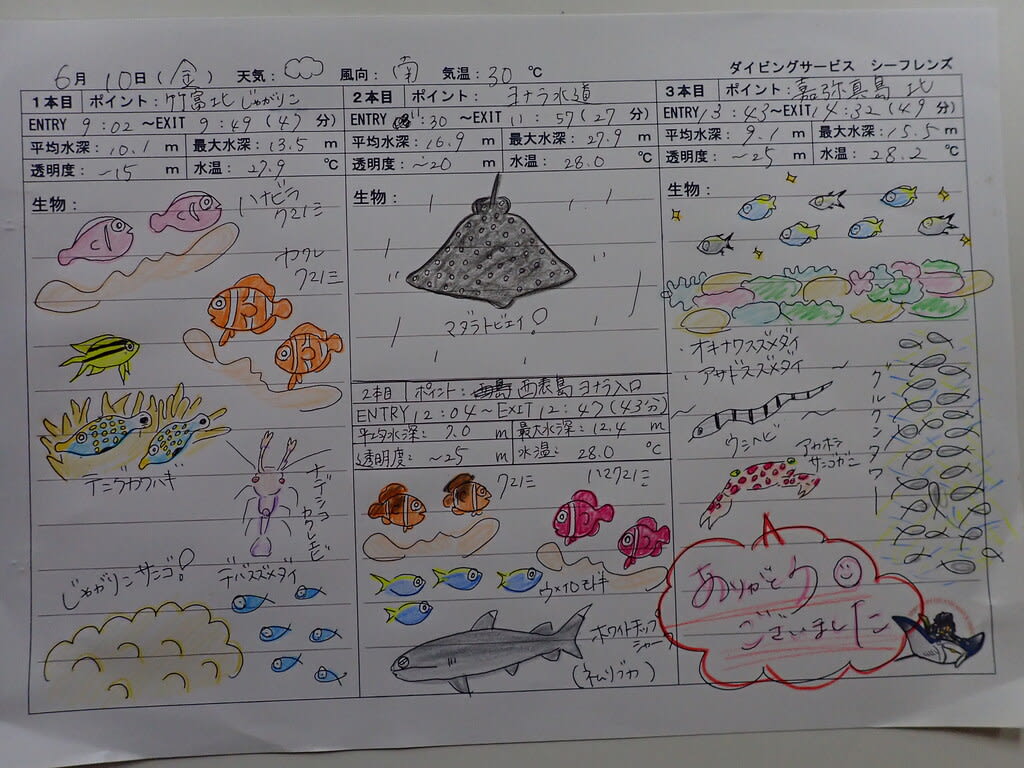 6月 10日(金) 天気: 風向:南 気温:30℃ ダイビングサービス シーフレンズ
1本目 ポイント:竹富北じゃがりこ
ENTRY 9:02 ~EXIT 9:49 (47分)
平均水深:10.1m 最大水深:13.5m
透明度:~15m 水温:27.9℃
生物:
ハナビラ
クマノミ
カクレ
クマノミ
テングカワハギ
ナデシコ
カクレエビ
じゃがりこサンゴ!
デバスズメダイ
2本目 ポイント:ヨナラ水道
ENTRY :30 ~EXIT 11:57(27分)
平均水深:16.9m 最大水深:27.9m
透明度:~20m 水温:28.0℃
生物:
マダラトビエイ!
2本目 ポイント: 西表島ヨナラ入口
ENTRY 12:04~EXIT 12:47(43分)
平均水深:7.0m 最大水深:12.4m
透明度:~25m 水温:28.0℃
クマノミ
ハマクマノミ
ウメイロモドキ
ホワイトチップ
シャーク
(ネムリブカ)
3本目 ポイント:嘉弥真島 北
ENTRY 13:43~EXIT 14:32(49分)
平均水深:9.1m 最大水深:15.5m
透明度:~25m 水温:28.2℃
生物:
・オキナワスズメダイ
・アサドスズメダイ
グルクンタワー
ウミヘビ
アカホシ
サンゴガニ
ありがとう
ございました